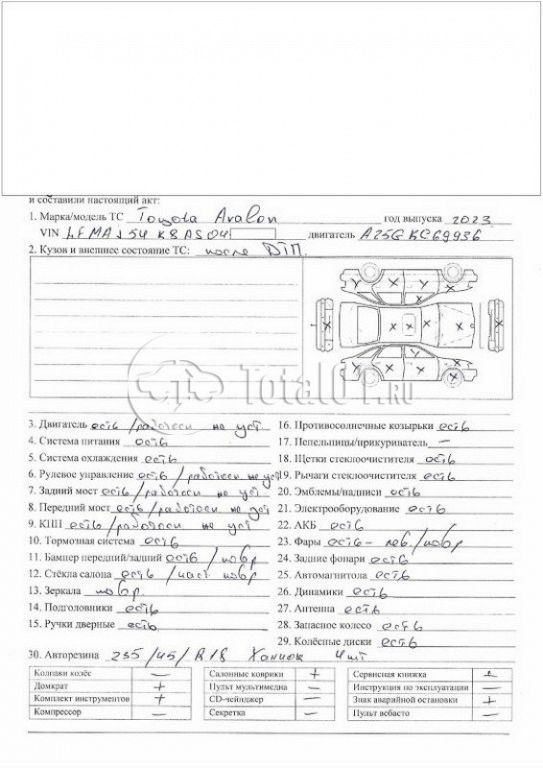 и составили настоящий акт:
1. Марка/модель ТС Toyota Avalon год выпуска 2023
VIN двигатель
2. Кузов и внешнее состояние ТС: после ДТП.
Total01.ru
3. Двигатель есть / работосп не уст 16. Противосолнечные козырьки есть
4. Система питания есть 17. Пепельницы/прикуриватель —
5. Система охлаждения есть 18. Щетки стеклоочистителя есть
6. Рулевое управление есть / работосп не уст 19. Рычаги стеклоочистителя есть
7. Задний мост есть / работосп не уст 20. Эмблемы/надписи есть
8. Передний мост есть / работосп не уст 21. Электрооборудование есть
9. КПП есть / работосп не уст 22. АКБ есть
10. Тормозная система есть 23. Фары есть – лев. / повр
11. Бампер передний/задний есть / повр 24. Задние фонари есть
12. Стёкла салона есть / част повр 25. Автомагнитола есть
13. Зеркала повр. 26. Динамики есть
14. Подголовники есть 27. Антенна есть
15. Ручки дверные есть 28. Запасное колесо есть
29. Колёсные диски есть
30. Авторезина 235/45/R18 Ханкок 4шт
Колпаки колёс — Салонные коврики + Сервисная книжка
Домкрат + Пульт мультимедиа — Инструкция по эксплуатации —
Комплект инструментов + CD-чейнджер — Знак аварийной остановки +
Компрессор — Секретка — Пульт вебасто —